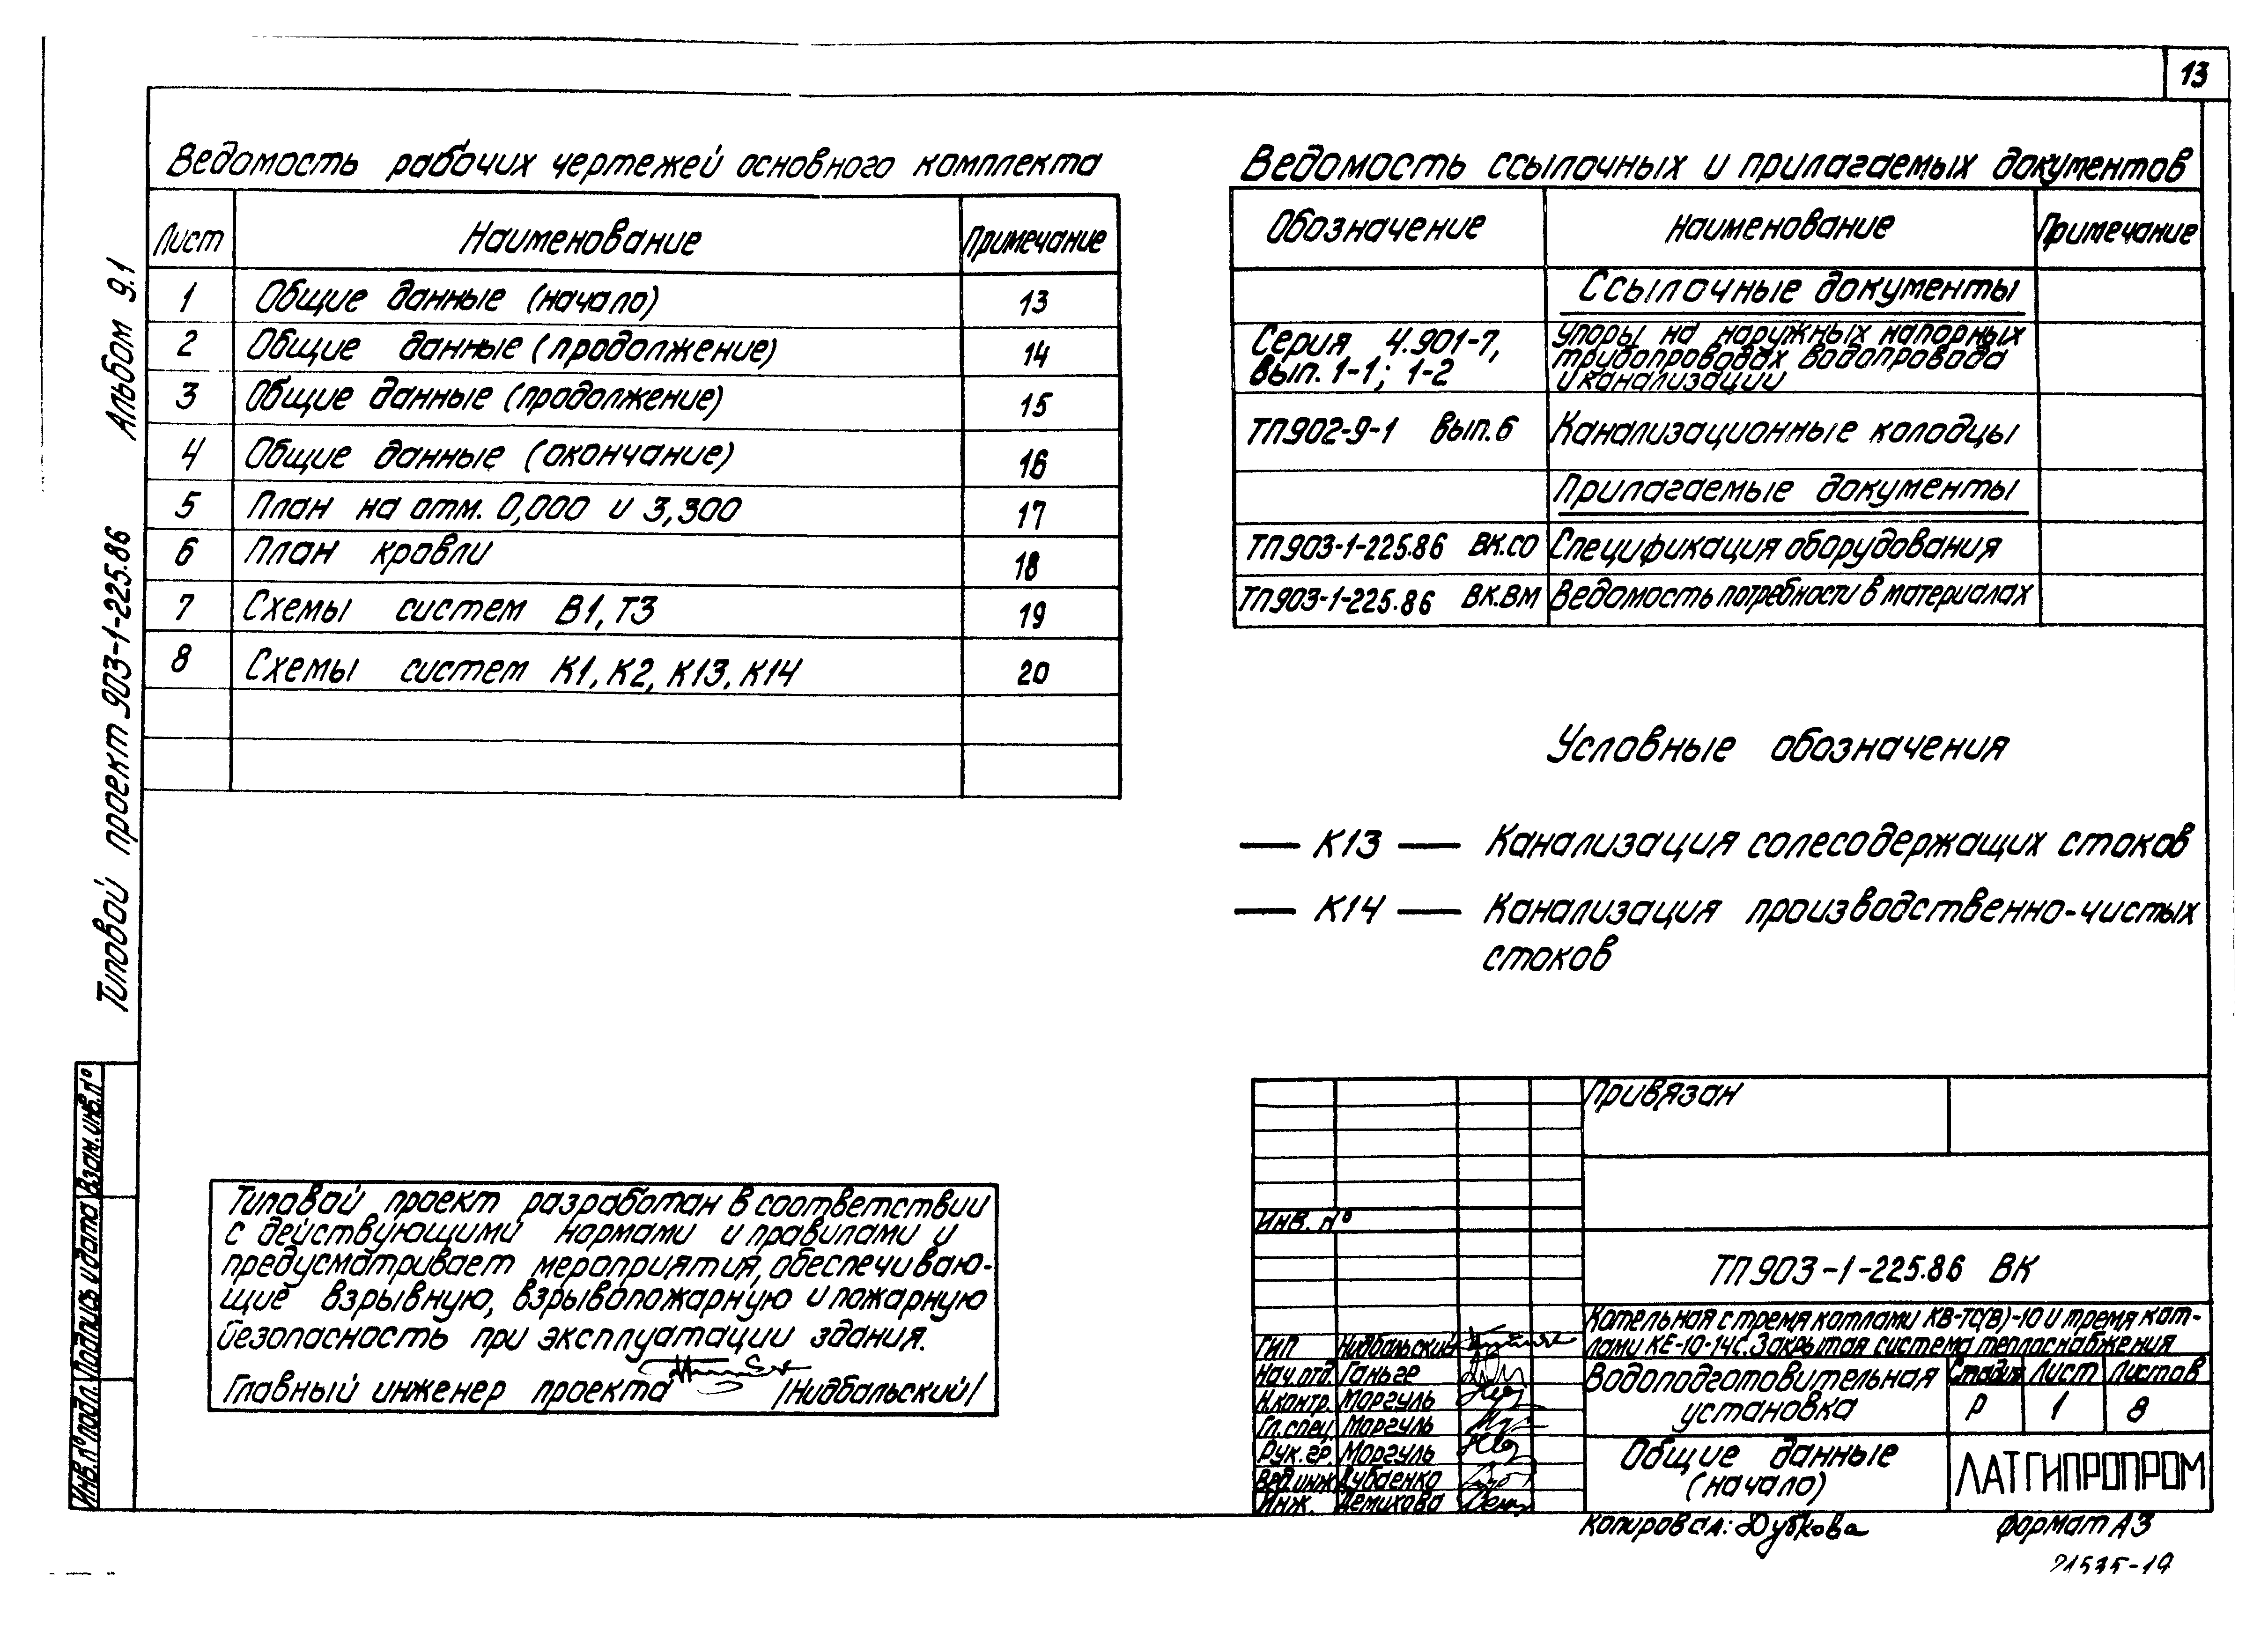 13
Ведомость рабочих чертежей основного комплекта
Лист Наименование Примечание
1 Общие данные (начало) 13
2 Общие данные (продолжение) 14
3 Общие данные (продолжение) 15
4 Общие данные (окончание) 16
5 План на отм. 0,000 и 3,300 17
6 План кровли 18
7 Схемы систем В1, Т3 19
8 Схемы систем К1, К2, К13, К14 20
Ведомость ссылочных и прилагаемых документов
Обозначение Наименование Примечание
Ссылочные документы
Серия 4.901-7, вып. 1-1; 1-2
Упоры на наружных напорных
трубопроводах водопровода
и канализации
ТП902-9-1 вып.6 Канализационные колодцы
Прилагаемые документы
ТП903-1-225.86 ВК.СО Спецификация оборудования
ТП903-1-225.86 ВК.ВМ Ведомость потребности в материалах
Условные обозначения
— К13 — Канализация солесодержащих стоков
— К14 — Канализация производственно-чистых
стоков
Альбом 9.1
Типовой проект 903-1-225.86
Взам.инв.№
Подпись и дата
Инв.№подл.
Типовой проект разработан в соответствии
с действующими нормами и правилами и
предусматривает мероприятия, обеспечиваю-
щие взрывную, взрывопожарную и пожарную
безопасность при эксплуатации здания.
Главный инженер проекта /Нидбальский/
Привязан
Инв. №
ТП903-1-225.86 ВК
Котельная с тремя котлами КВ-ТС(В)-10 и тремя кот-
лами КЕ-10-14С. Закрытая система теплоснабжения
ГИП Нидбальский
Нач.отд. Ганьге
Н.контр. Моргуль
Гл.спец. Моргуль
Рук.гр. Моргуль
Вед.инж. Дубаенко
Инж. Демихова
Водоподготовительная
установка
Стадия Лист Листов
Р 1 8
Общие данные
(начало)
ЛАТГИПРОПРОМ
Копировал: Дубкова Формат А3
21535-19